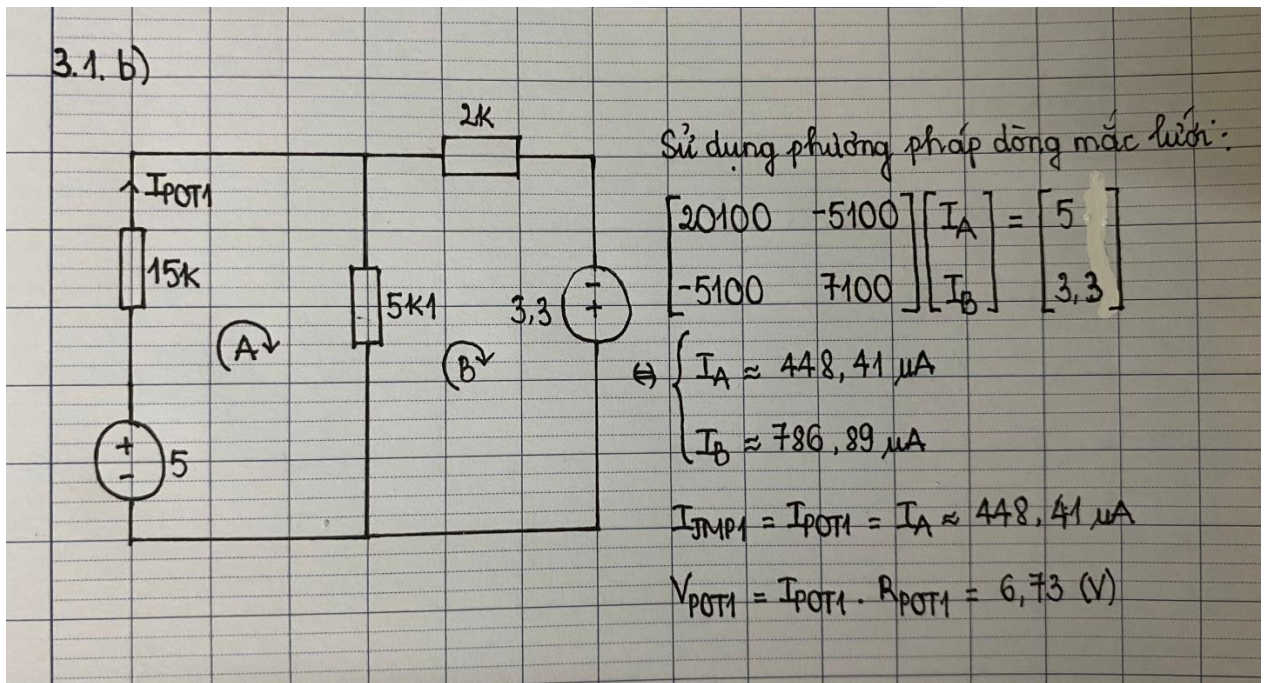 3.1. b)
2K
IPOT1
15K
5K1
3,3
-
+
A
B
+
-
5
Sử dụng phương pháp dòng mắc lưới:
[20100 -5100] [IA] = [5]
[-5100 7100] [IB] [3,3]
⇔ { IA ≈ 448,41 µA
IB ≈ 786,89 µA
IJMP1 = IPOT1 = IA ≈ 448,41 µA
VPOT1 = IPOT1 . RPOT1 = 6,73 (V)